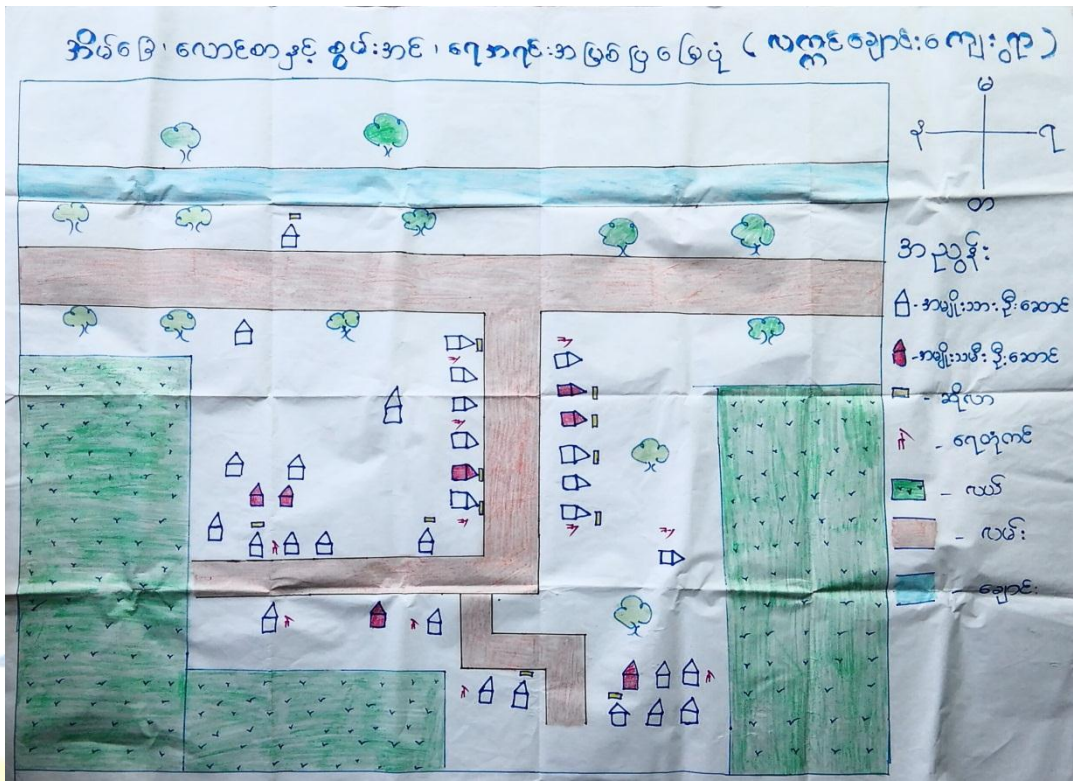 အိမ်ခြေ၊ လောင်စာနှင့် စွမ်းအင်၊ ရေအရင်းအမြစ်ပြမြေပုံ (လက္ကင်ချောင်းကျေးရွာ)
မ
န
ရ
တ
အညွှန်း
- အမျိုးသားဦးဆောင်
- အမျိုးသမီးဦးဆောင်
- ဆိုလာ
- ရေတုံကင်
- လယ်
- လမ်း
- ချောင်း